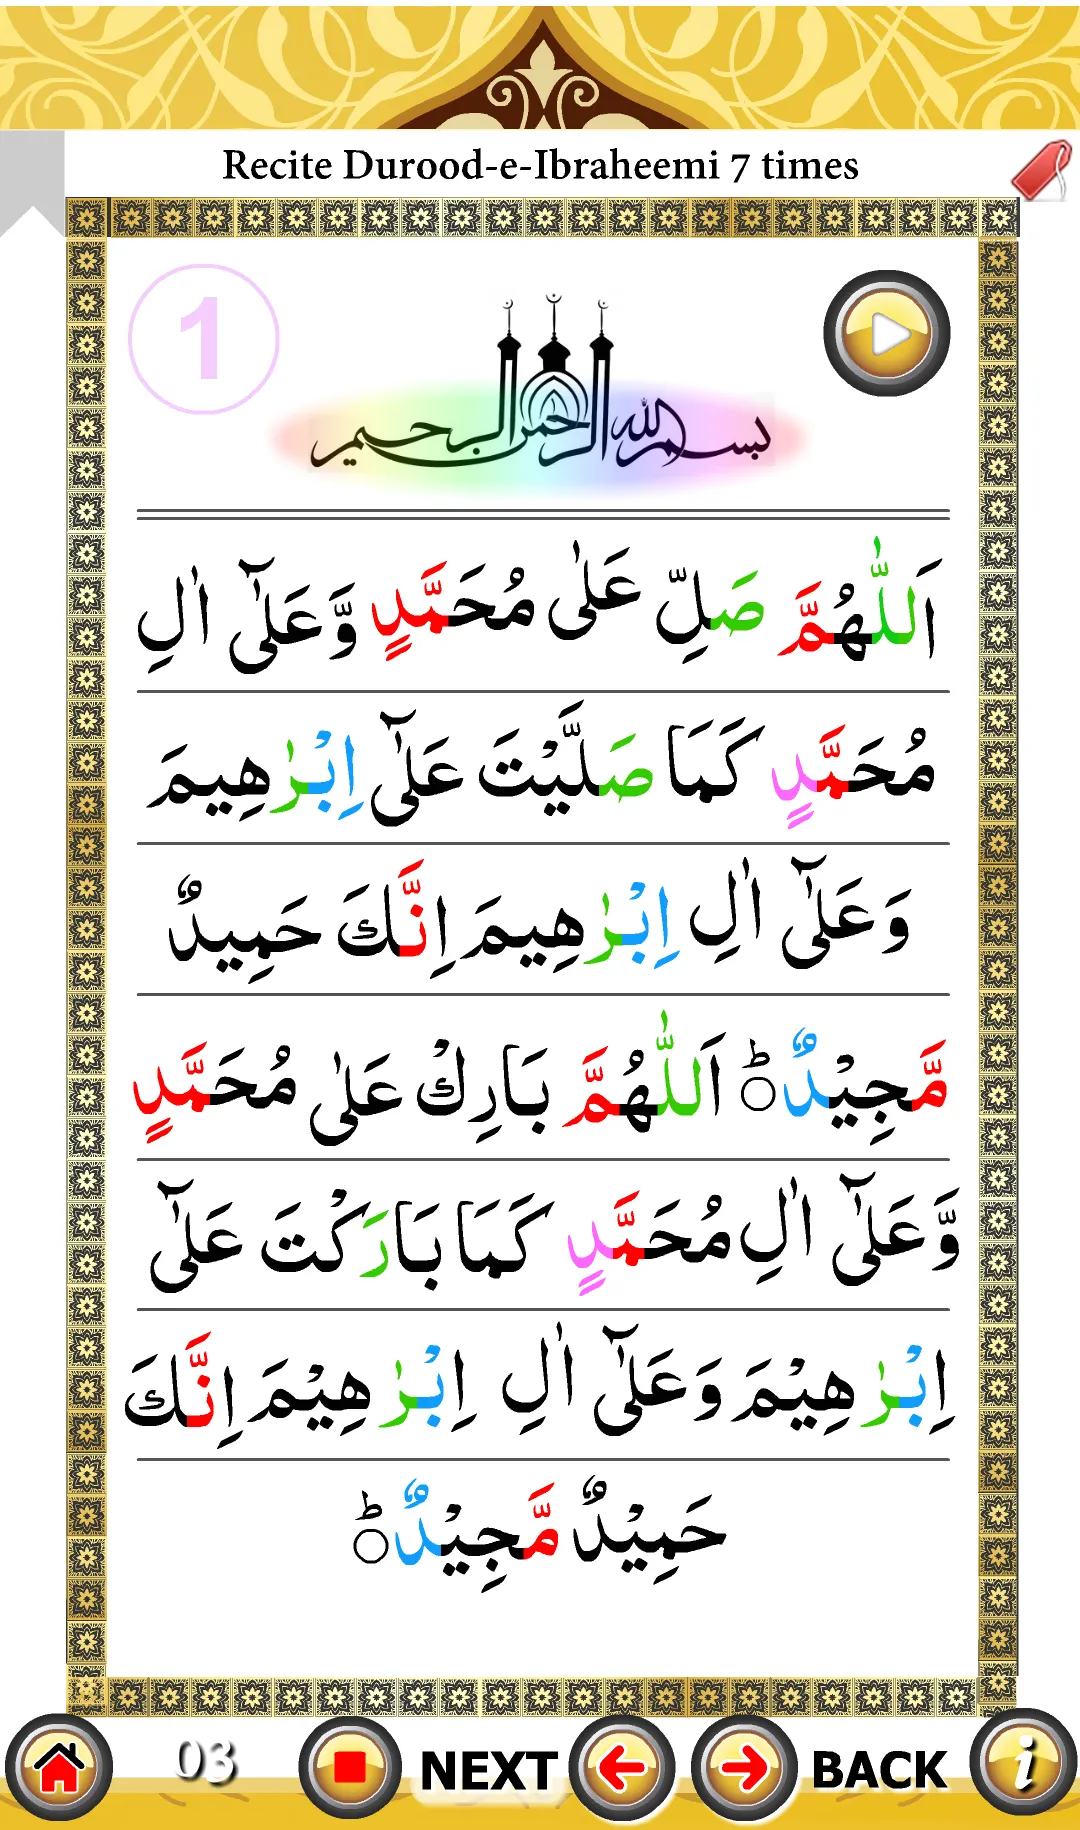 Recite Durood-e-Ibraheemi 7 times
1
بسم الله الرحمن الرحيم
اَللّٰهُمَّ صَلِّ عَلٰى مُحَمَّدٍ وَّعَلٰٓى اٰلِ
مُحَمَّدٍ كَمَا صَلَّيْتَ عَلٰٓى اِبْرٰهِيمَ
وَعَلٰٓى اٰلِ اِبْرٰهِيمَ اِنَّكَ حَمِيدٌ
مَّجِيْدٌ ؕ اَللّٰهُمَّ بَارِكْ عَلٰى مُحَمَّدٍ
وَّعَلٰٓى اٰلِ مُحَمَّدٍ كَمَا بَارَكْتَ عَلٰٓى
اِبْرٰهِيْمَ وَعَلٰٓى اٰلِ اِبْرٰهِيْمَ اِنَّكَ
حَمِيْدٌ مَّجِيْدٌ ؕ
03 NEXT BACK i